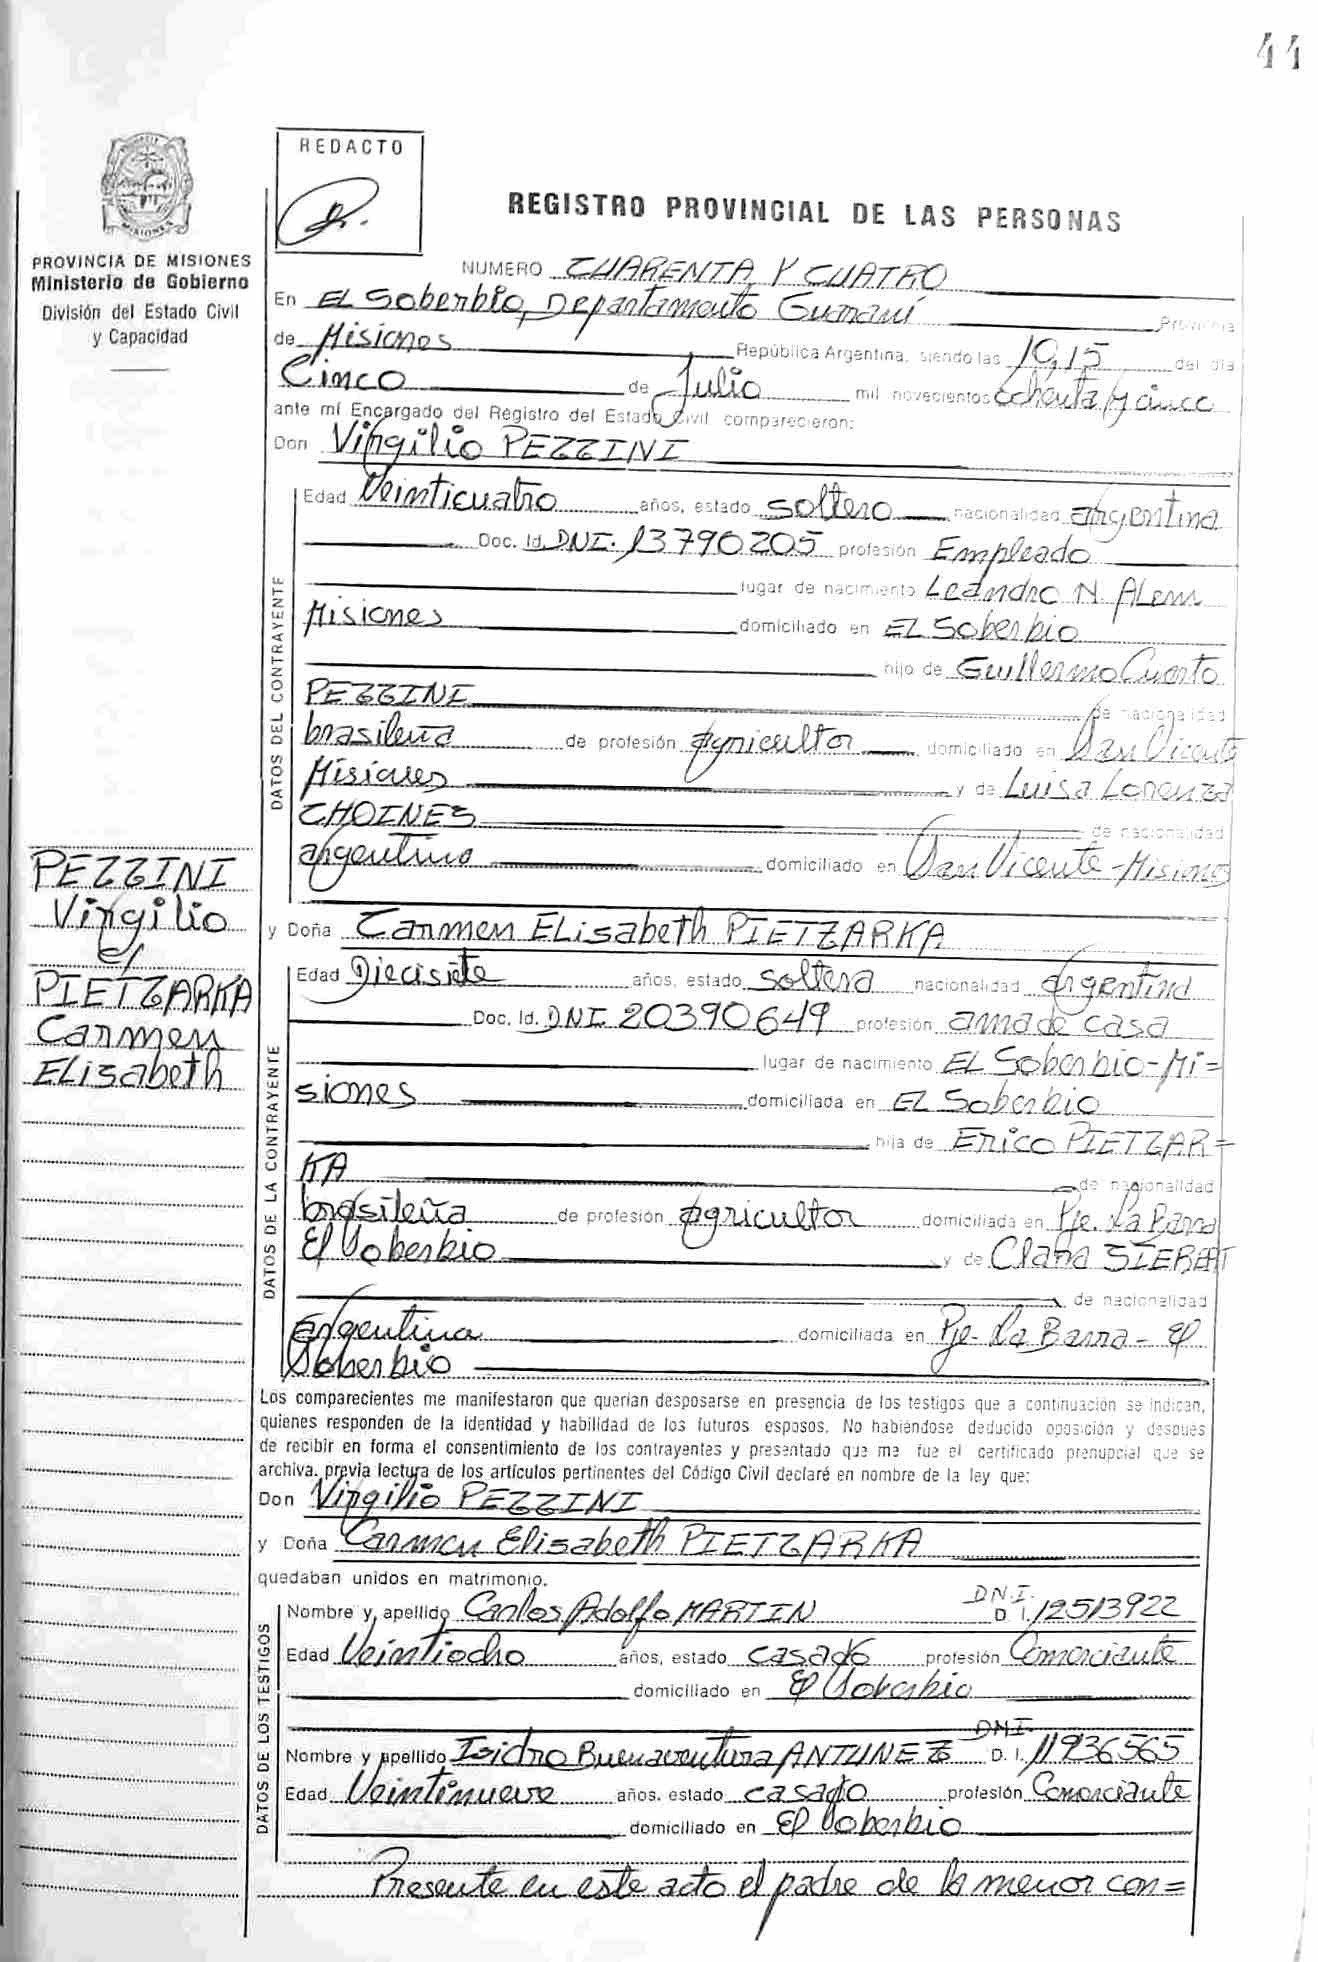 44
REDACTO
REGISTRO PROVINCIAL DE LAS PERSONAS
PROVINCIA DE MISIONES
Ministerio de Gobierno
División del Estado Civil
y Capacidad
NUMERO CUARENTA Y CUATRO
En EL Soberbio, Departamento Guaraní Provincia
de Misiones República Argentina, siendo las 10,15 del día
Cinco de Julio mil novecientos ochenta y cinco
ante mí Encargado del Registro del Estado Civil comparecieron:
Don Virgilio PEZZINI
DATOS DEL CONTRAYENTE
Edad Veinticuatro años, estado soltero nacionalidad argentina
Doc. Id. DNI. 13790205 profesión Empleado
lugar de nacimiento Leandro N. ALem
Misiones domiciliado en EL Soberbio
hijo de Guillermo Cuarto
PEZZINI de nacionalidad
brasileña de profesión agricultor domiciliado en San Vicente
Misiones y de Luisa Lorenza
CHOINES de nacionalidad
argentina domiciliado en San Vicente - Misiones
PEZZINI
Virgilio
c/
PIETZARKA
Carmen
ELisabeth
y Doña Carmen ELisabeth PIETZARKA
DATOS DE LA CONTRAYENTE
Edad Diecisiete años, estado soltera nacionalidad argentina
Doc. Id. DNI 20390649 profesión ama de casa
lugar de nacimiento EL Soberbio-Mi=
siones domiciliada en EL Soberbio
hija de Erico PIETZAR=
KA de nacionalidad
brasileña de profesión agricultor domiciliada en Pje. La Barra
El Soberbio y de Clara SIEBERT
de nacionalidad
argentina domiciliada en Pje- La Barra - El
Soberbio
Los comparecientes me manifestaron que querían desposarse en presencia de los testigos que a continuación se indican,
quienes responden de la identidad y habilidad de los futuros esposos. No habiéndose deducido oposición y después
de recibir en forma el consentimiento de los contrayentes y presentado que me fue el certificado prenupcial que se
archiva, previa lectura de los artículos pertinentes del Código Civil declaré en nombre de la ley que:
Don Virgilio PEZZINI
y Doña Carmen Elisabeth PIETZARKA
quedaban unidos en matrimonio.
DATOS DE LOS TESTIGOS
DNI.
Nombre y apellido Carlos Adolfo MARTIN D. I. 12513922
Edad Veintiocho años, estado casado profesión Comerciante
domiciliado en El Soberbio
DNI.
Nombre y apellido Isidro Buenaventura ANTUNEZ D. I. 11936565
Edad Veintinueve años, estado casado profesión Comerciante
domiciliado en El Soberbio
Presente en este acto el padre de la menor con=